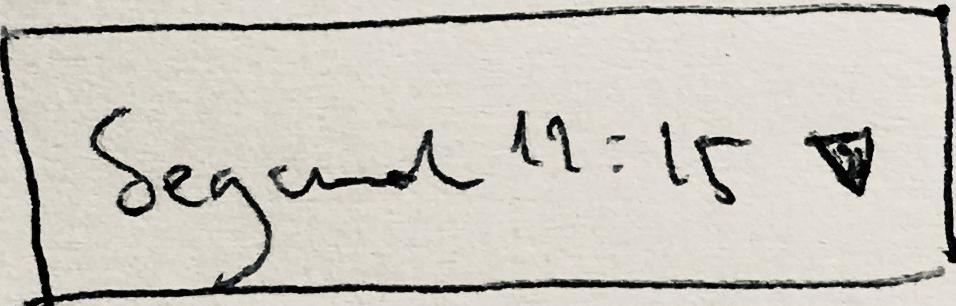 Segund 11:15